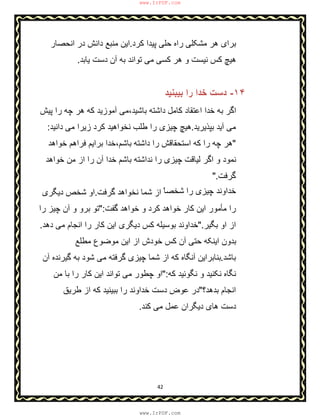 www.IrPDF.com
برای هر مشکلی راه حلی پیدا کرد.این منبع دانش در انحصار
هیچ کس نیست و هر کسی می تواند به آن دست یابد.
۱۴- دست خدا را ببینید
اگر به خدا اعتقاد کامل داشته باشید،می آموزید که هر چه را پیش
می آید بپذیرید.هیچ چیزی را طلب نخواهید کرد زیرا می دانید:
"هر چه را که استحقاقش را داشته باشم،خدا برایم فراهم خواهد
نمود و اگر لیاقت چیزی را نداشته باشم خدا آن را از من خواهد
گرفت."
خداوند چیزی را شخصاً از شما نخواهد گرفت.او شخص دیگری
را مأمور این کار خواهد کرد و خواهد گفت:"تو برو و آن چیز را
از او بگیر."خداوند بوسیله کس دیگری این کار را انجام می دهد.
بدون اینکه حتی آن کس خودش از این موضوع مطلع
باشد.بنابراین آنگاه که از شما چیزی گرفته می شود به گیرنده آن
نگاه نکنید و نگوئید که:"او چطور می تواند این کار را با من
انجام بدهد؟"در عوض دست خداوند را ببینید که از طریق
دست های دیگران عمل می کند.
42
www.IrPDF.com